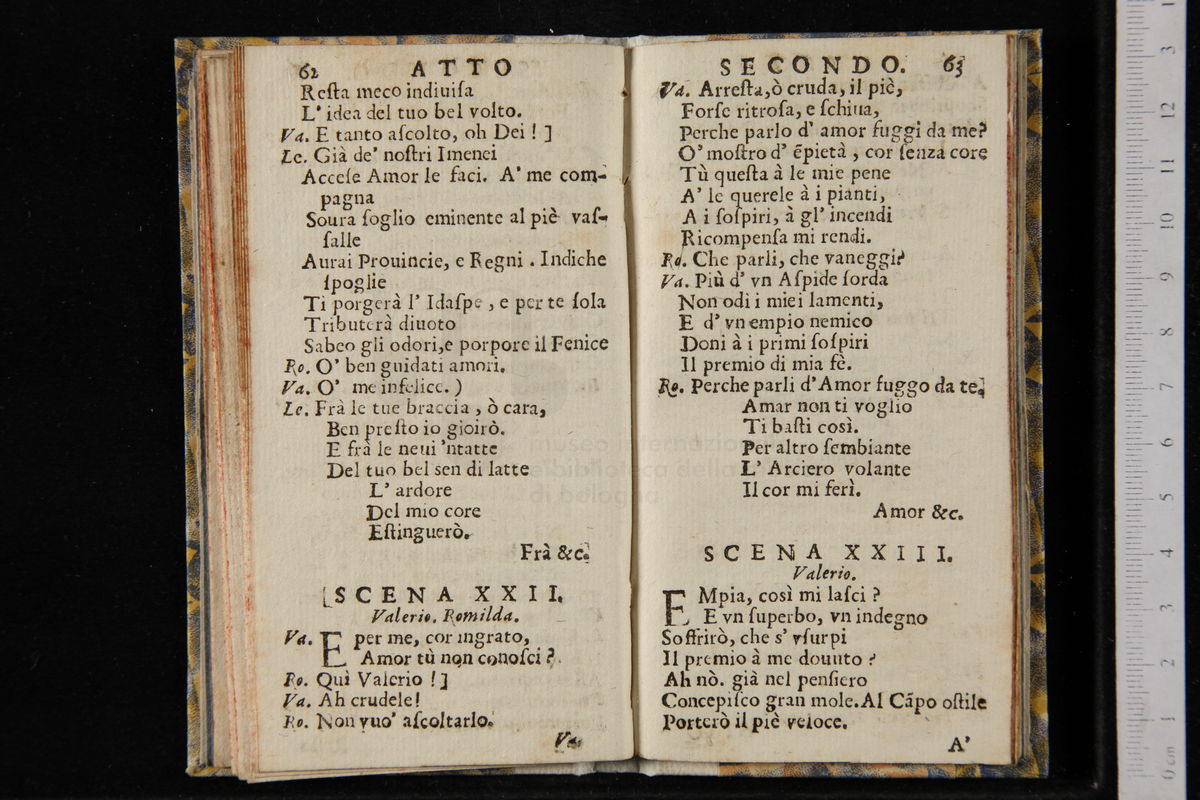 62 ATTO
Resta meco indiuisa
L' idea del tuo bel volto.
Va. E tanto ascolto, oh Dei ! ]
Le. Già de' nostri Imenei
Accese Amor le faci. A' me com-
pagna
Soura soglio eminente al piè vas-
salle
Aurai Prouincie, e Regni . Indiche
spoglie
Ti porgerà l' Idaspe , e per te sola
Tributerà diuoto
Sabeo gli odori,e porpore il Fenice
Ro. O' ben guidati amori.
Va. O' me infelice. )
Le. Frà le tue braccia , ò cara,
Ben presto io gioirò.
E frà le neui 'ntatte
Del tuo bel sen di latte
L' ardore
Del mio core
Estinguerò.
Frà &c.
[SCENA XXII.
Valerio. Romilda.
Va. E per me, cor ingrato,
Amor tù non conosci ?
Ro. Quì Valerio ! ]
Va. Ah crudele!
Ro. Non vuo' ascoltarlo.
Va.
SECONDO. 63
Va. Arresta,ò cruda, il piè,
Forse ritrosa, e schiua,
Perche parlo d' amor fuggi da me?
O' mostro d' ēpietà , cor senza core
Tù questa à le mie pene
A' le querele à i pianti,
A i sospiri, à gl' incendi
Ricompensa mi rendi.
Ro. Che parli, che vaneggi?
Va. Più d' vn Aspide sorda
Non odi i miei lamenti,
E d' vn empio nemico
Doni à i primi sospiri
Il premio di mia fè.
Ro. Perche parli d'Amor fuggo da te,
Amar non ti voglio
Ti basti così.
Per altro sembiante
L' Arciero volante
Il cor mi ferì.
Amor &c.
SCENA XXIII.
Valerio.
EMpia, così mi lasci ?
E vn superbo, vn indegno
Soffrirò, che s' vsurpi
Il premio à me douuto ?
Ah nò. già nel pensiero
Concepisco gran mole.Al Cāpo ostile
Porterò il piè veloce.
A'
museo internazionale
e biblioteca della
di bologna